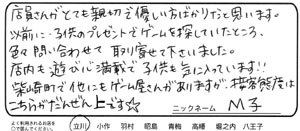 店員さんがとても親切で優しい方ばかりだと思います。
以前に子供のプレゼントでゲームを探していたところ、
色々問い合わせて取り寄せて下さいました。
店内も遊び心満載で子供も気に入っています!!
柴崎町で他にもゲーム屋さんがありますが、接客態度は
こちらがだんぜん上です☆
ニックネーム M子
よく利用されるお店を
○で囲んでください。
立川 小作 羽村 昭島 青梅 高幡 堀之内 八王子